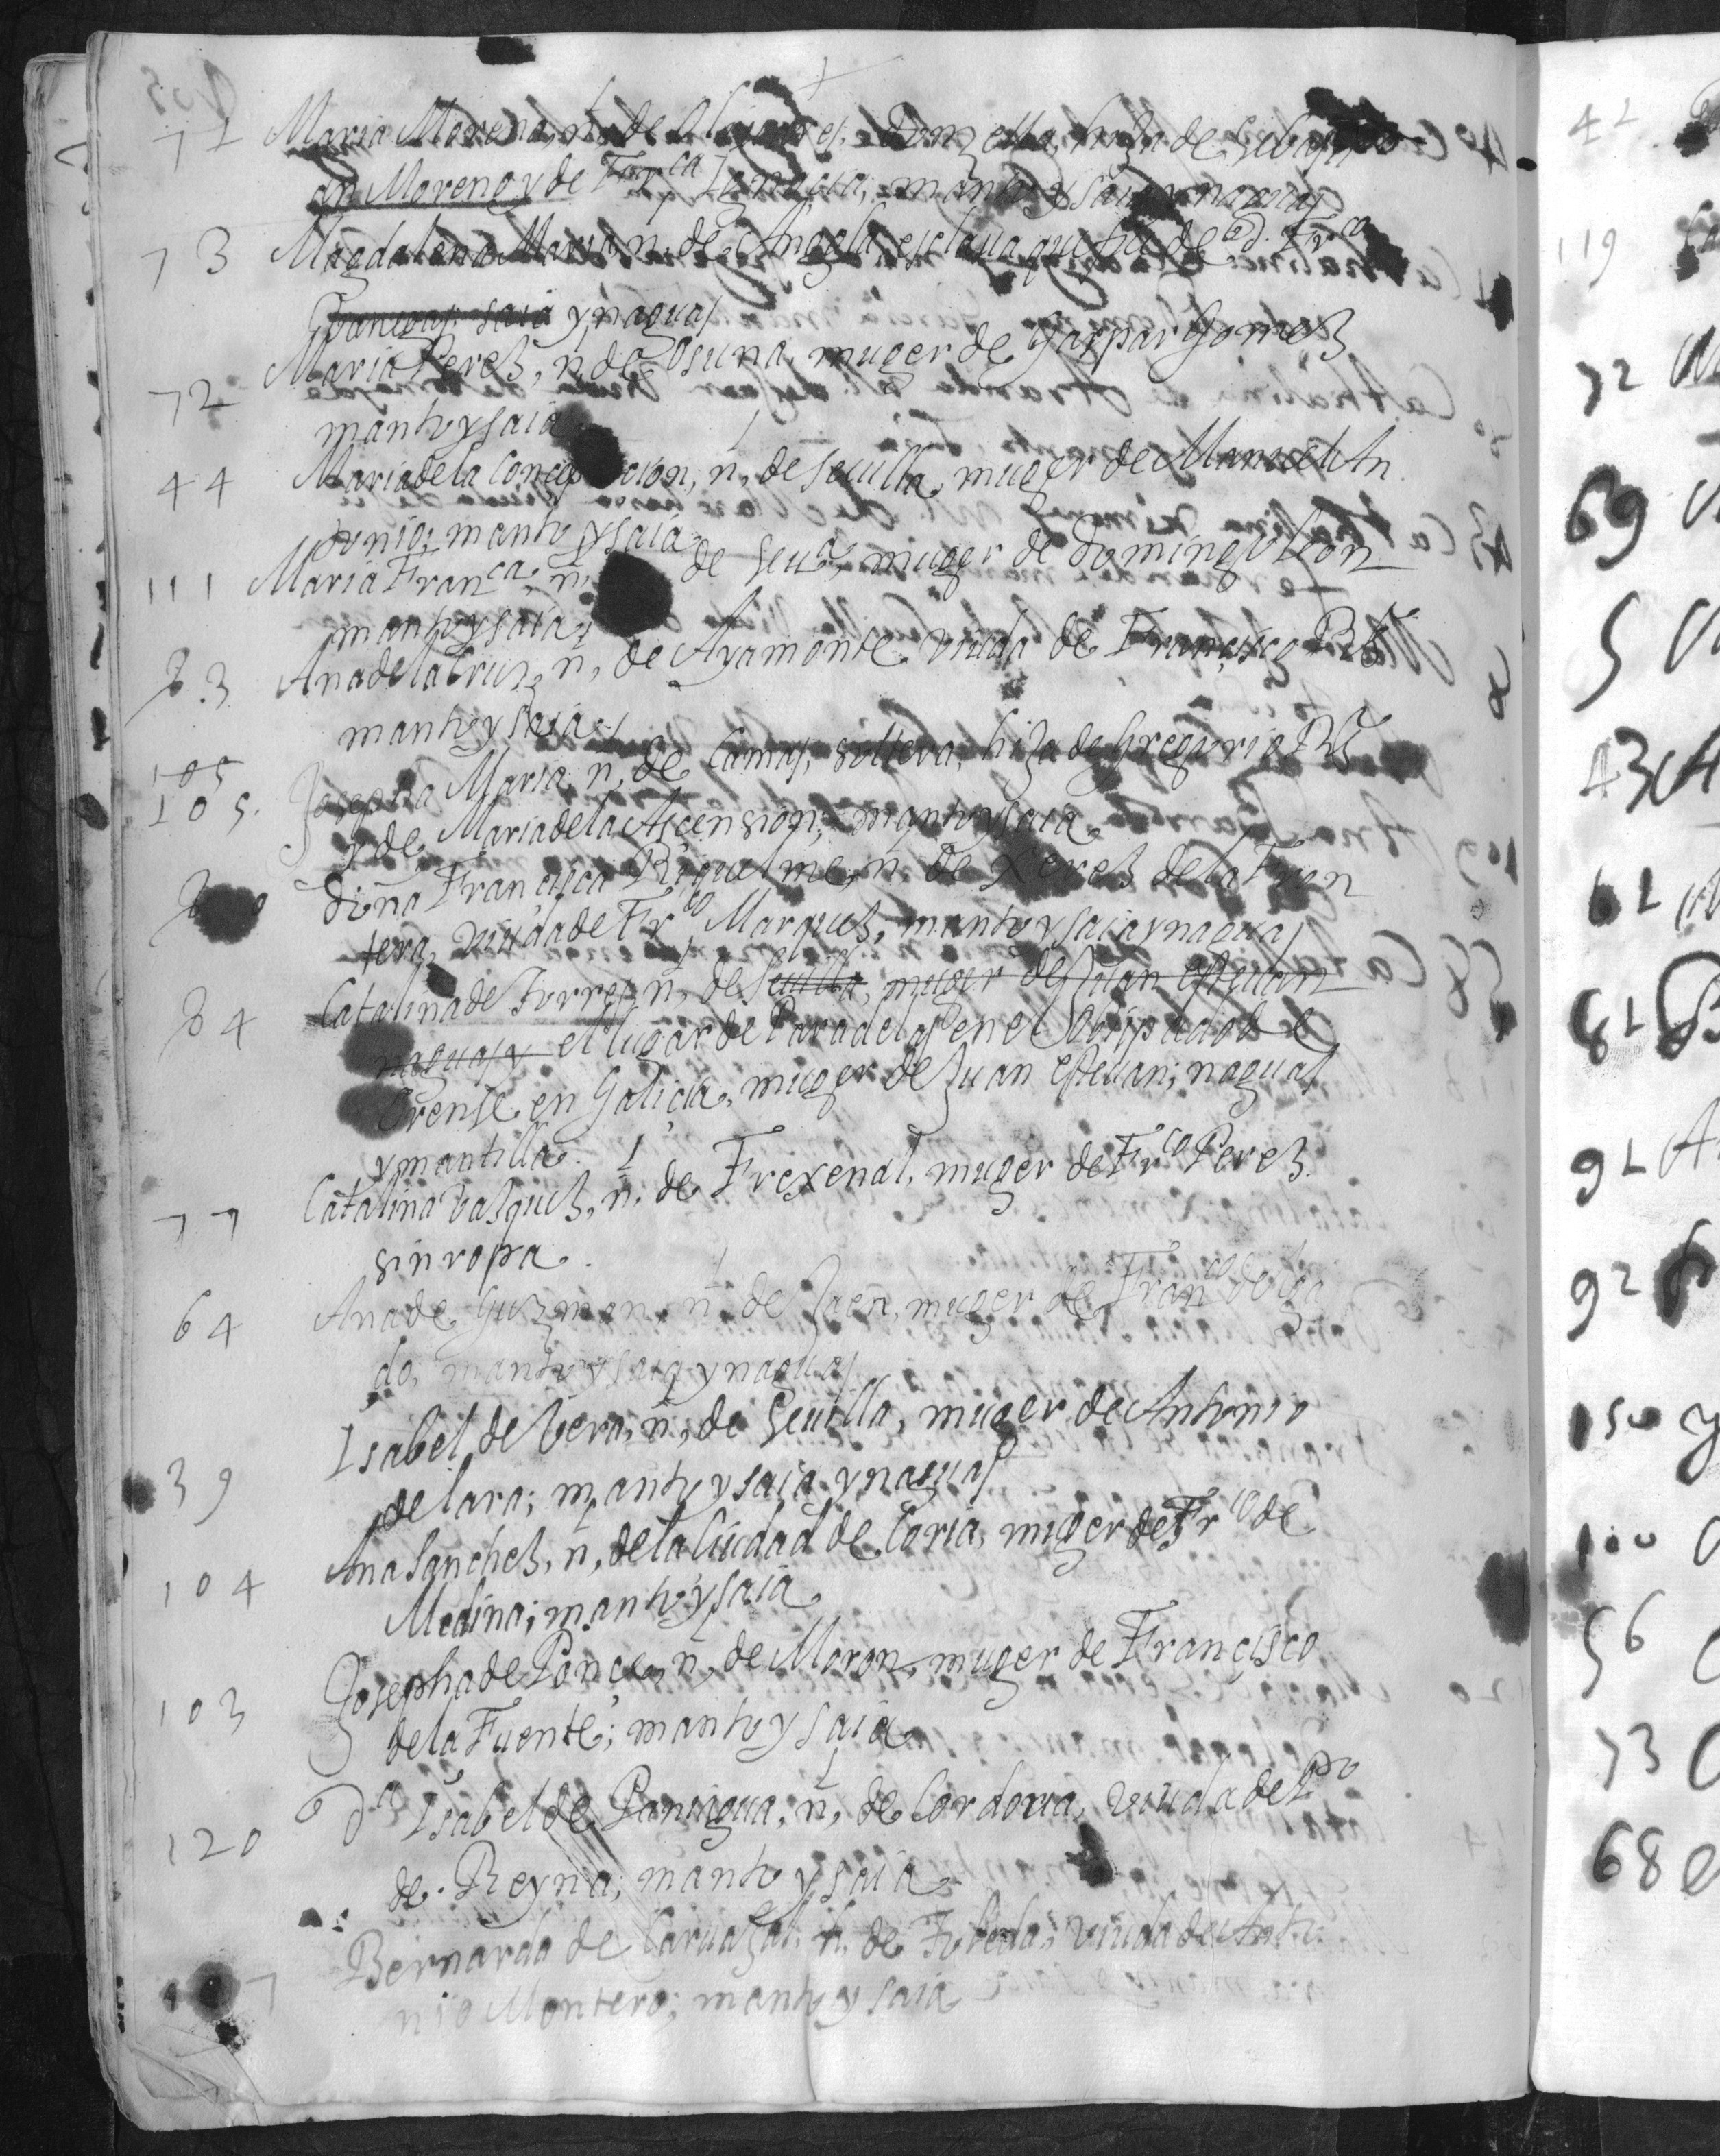 71 Maria Morena, n. de donzella, hija de Sebasti
an Moreno y de Fran.ca manto y saia y naguas
73 Magdalena Maria n. de Angola, esclaua que fue de d. Fr.co
saia y naguas
72 Maria Peres, n. de Osuna, muger de Gaspar Gomes
manto y saia
44 Maria de la Concepcion, n. de Seuilla, muger de Manuel An
tonio; manto y saia
111 Maria Fran.ca, n. de Seu.a, muger de Domingo Leon
manto y saia
83 Ana de la Cruz, n. de Ayamonte viuda de Francisco Rs
manto y saia
105
105. Josepha Maria n. de Camas, soltera, hija de Gregorio Rs
y de Maria de la Ascension; manto y saia
doña Francisca Riquelme, n. de Xeres de la Fron
tera, viuda de Fr.co Marques; manto y saia y naguas
84 Catalina de Torres n. de Seuilla, muger de Juan Esteuan
naguas y el lugar de Paradelas en el Obispado de
Orense en Galicia, muger de Juan Esteuan; naguas
y mantilla.
77 Catalina Vasques, n. de Frexenal, muger de Fr.co Peres.
sin ropa.
64 Ana de Guzman n. de Jaen, muger de Fran.co Delga
do, manto y saia y naguas
39 Isabel de Vera, n. de Seuilla, muger de Antonio
de Lara; manto y saia y naguas
104 Ana Sanches, n. de la Ciudad de Coria, muger de Fr.co de
Medina; manto y saia
103 Josepha de Ponce, n. de Moron, muger de Francisco
de la Fuente; manto y saia
120 D.a Isabel de Paniagua, n. de Cordoua, viuda de P.o
de Reyna; manto y saia
7 Bernarda de Caruajal n. de Toledo, viuda de Anto
nio Montero; manto y saia
42
119
72
69
5
43
61
81
91
92
150
100
56
73
68